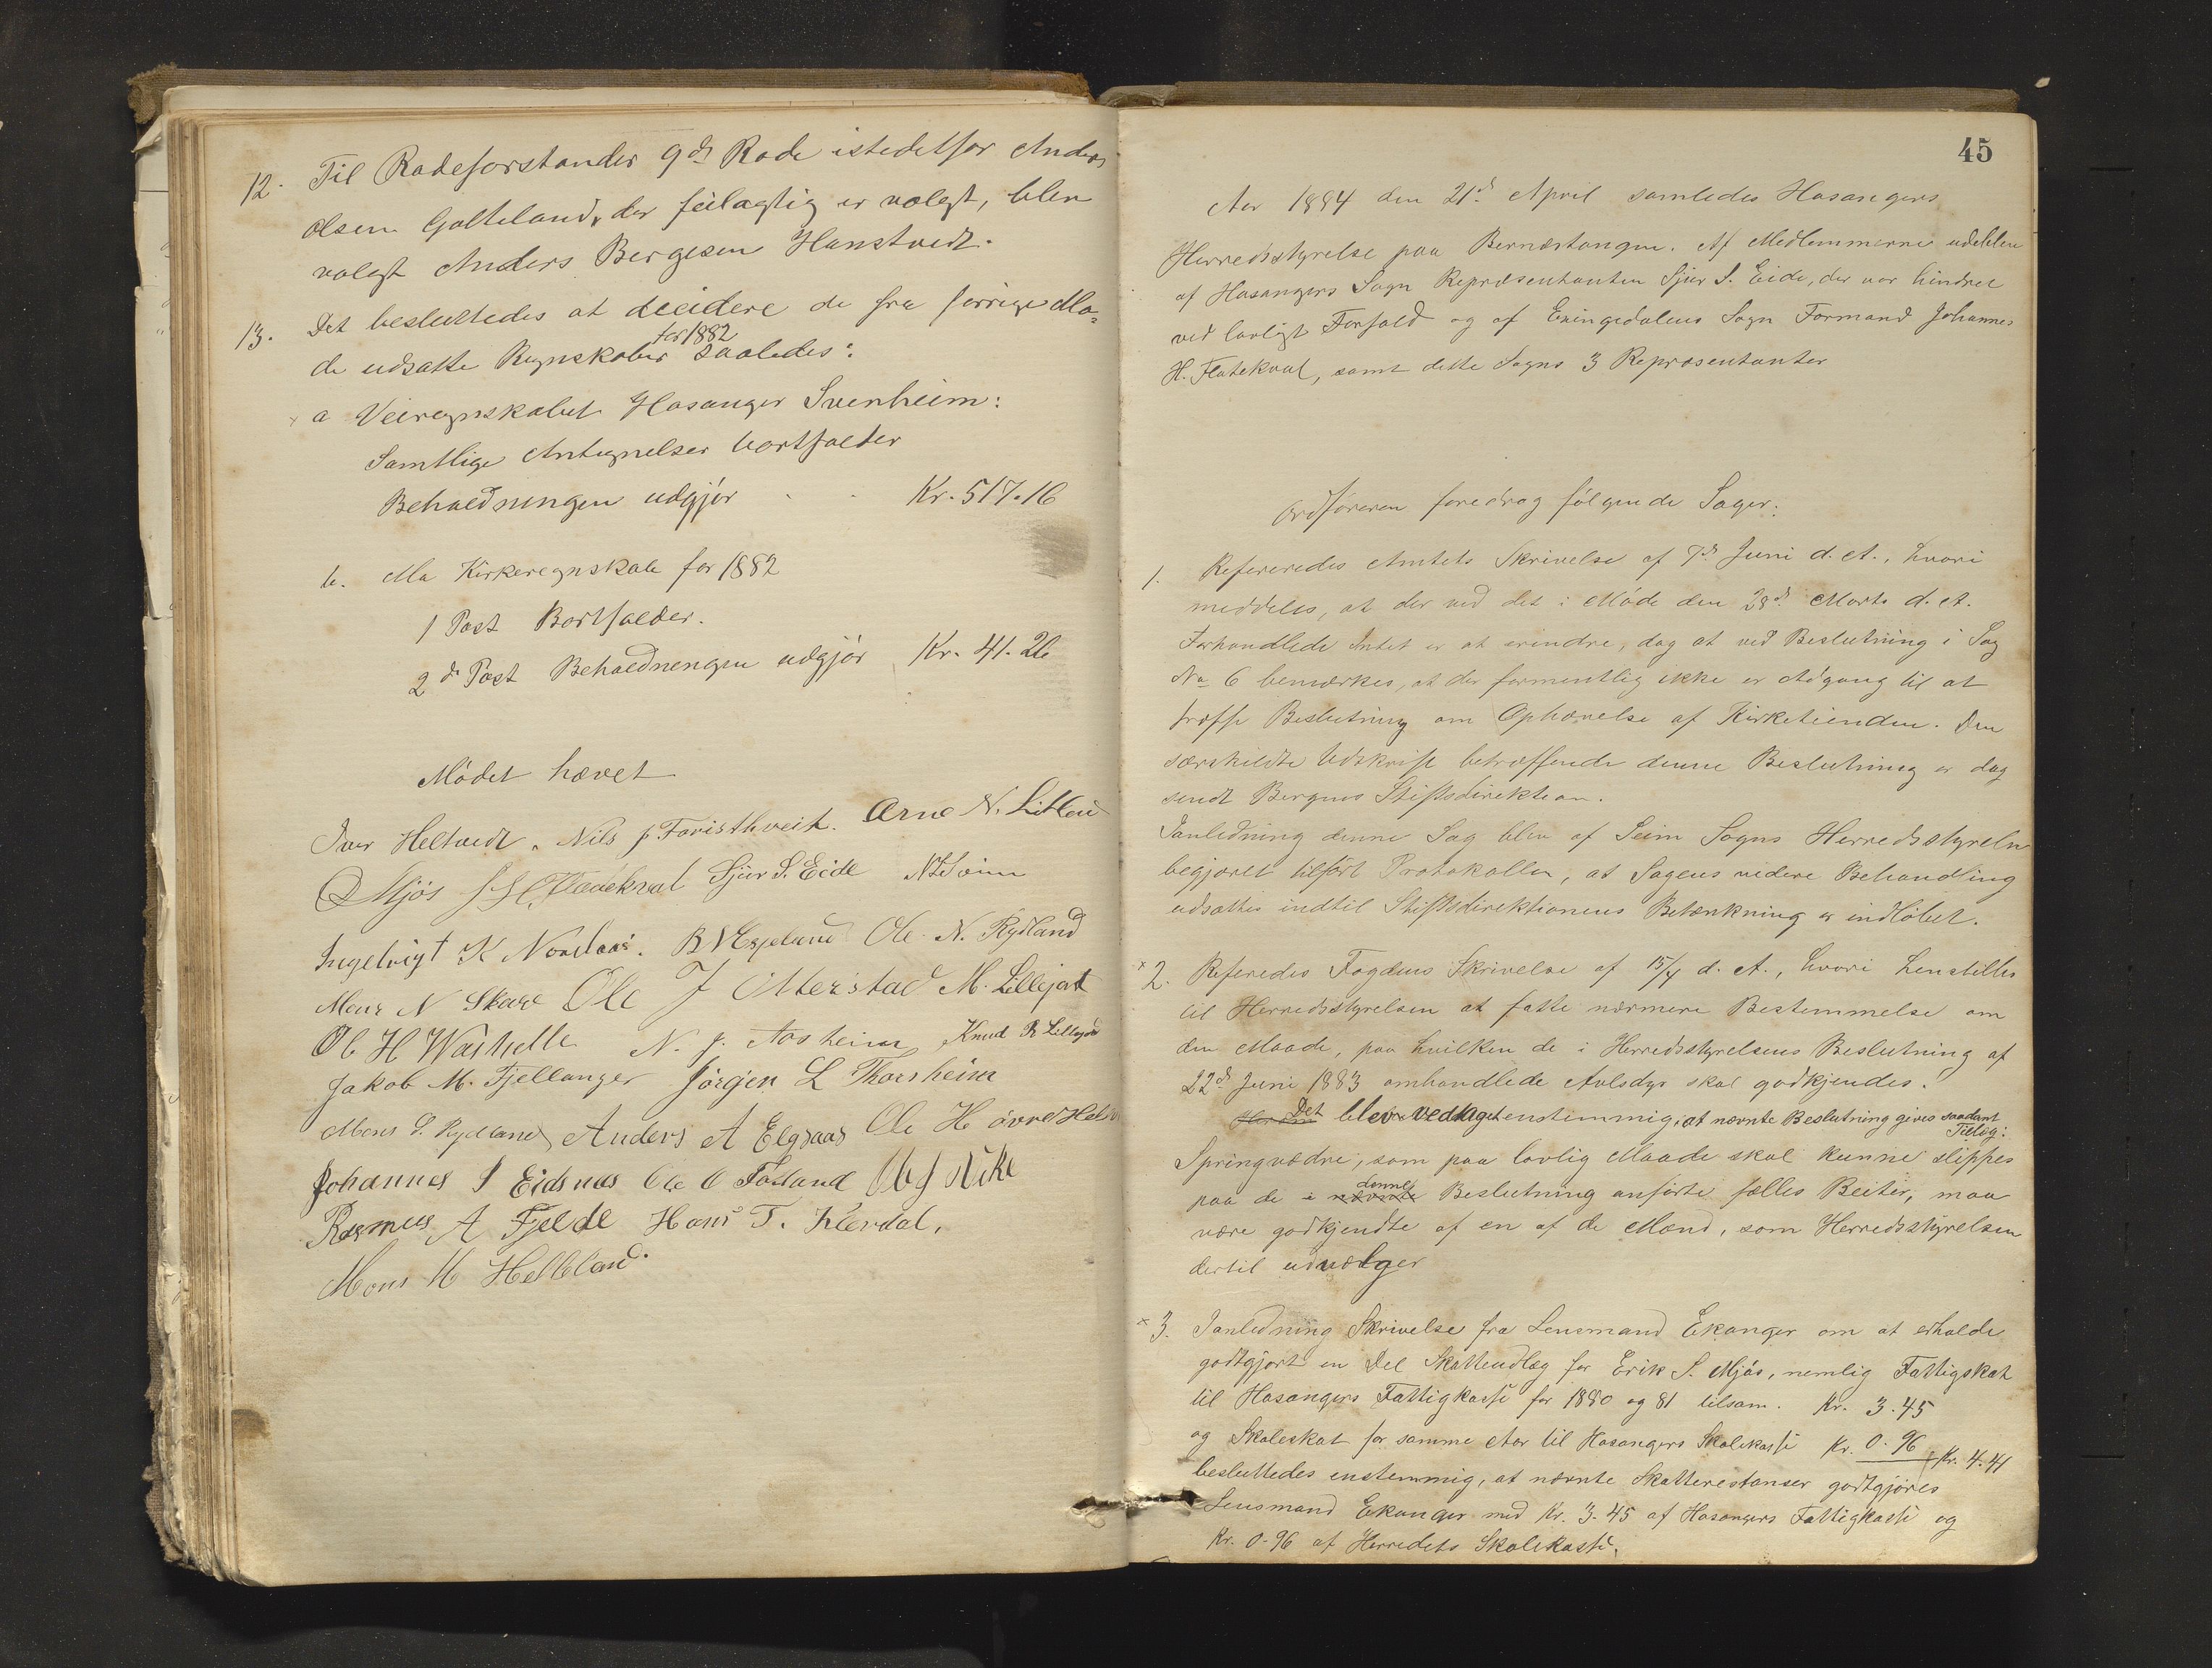 12. Til Rodeforstander 9de Rode istedetfor Anders
Olsen Galteland, der feilagtig er valgt, blev
valgt Anders Bergesen Hanstvedt.
13. Det besluttedes at decidere de fra forrige Mø-
de udsatte Regnskaber for 1882 saaledes:
a Veiregnskabet Hosanger Svenheim:
Samtlige Antegnelser bortfalder
Behaldningen udgjör Kr. 517.16
b. Mo Kirkeregnskab for 1882
1 Post Bortfalder.
2d Post Behaldnengen udgjör Kr. 41.26
Mödet hævet
Iver Heltvedt. Nils J. Faristhveit. Arne N. Litland
O Mjös J H Flatekval Sjur S. Eide
Ingebrigt K Nordaas. B N Espeland Ole N. Rydland
Mons N Skare Ole J Otterstad M. Lillejord
Ole H N. J. Aasheim Knud R Lillejord
Jakob M. Fjellanger Jörgen L Thorsheim
Mons S. Rydland Anders A Elgsaas Ole H övre Helle
Johannes I Eidsnes Ole O Fosland
Rasmus A Fjelde Hans T.
Mons M Helland.
45
Aar 1884 den 21d April samledes Hosangers
Herredsstyrelse paa Bernestangen. Af Medlemmerne udeblev
af Hosangers Sogn Repræsentanten Sjur S. Eide, der var hindret
ved lovligt Forfald og af Exingedalens Sogn Formand Johannes
H. Flatekval, samt dette Sogns 3 Repræsentanter
Ordföreren foredrog fölgende Sager:
1. Refereredes Amtets Skrivelse af 7de Juni d. A., hvori
meddeles, at der ved det i Möde den 28d Marts d. A.
Forhandlede Intet er at erindre, dog at ved Beslutning i Sag
No 6 bemærkes, at der formentlig ikke er Adgang til at
træffe Beslutning om Ophævelse af Kirketienden. Den
særskildte Udskrift betræffende denne Beslutning er dog
sendt Bergens Stiftsdirektion.
Ianledning denne Sag blev af Seim Sogns Herredsstyrelse
begjæret tilfört Protokollen, at Sagens videre Behandling
udsættes indtil Stiftsdirektionens Betænkning er indlöbet.
x 2. Referedes Fogdens Skrivelse af 15/4 d. A., hvori henstilles
til Herredsstyrelsen at fatte nærmere Bestemmelse om
den Maade, paa hvilken de i Herredsstyrelsens Beslutning af
22d Juni 1883 omhandlede Avlsdyr skal godkjendes.
Det blev vedtaget enstemmig, at nævnte Beslutning gives saadant Tillæg:
Springvædre, som paa lovlig Maade skal kunne slippes
paa de i nævnte denne Beslutning anförte fælles Beiter, maa
være godkjendte af en af de Mænd, som Herredsstyrelsen
dertil udvælger
x 3. Ianledning Skrivelse fra Lensmand Ekanger om at erholde
godtgjort en Del Skatteudlæg for Erik S. Mjös, nemlig Fattigskat
til Hosangers Fattigkasse for 1880 og 81 tilsam. Kr. 3.45
og Skoleskat for samme Aar til Hosangers Skolekasse Kr. 0.96 Kr. 4.41
besluttedes enstemmig, at nævnte Skatterestanser godtgjöres
Lensmand Ekanger med Kr. 3.45 af Hosangers Fattigkasse og
Kr. 0.96 af Herredets Skolekasse.